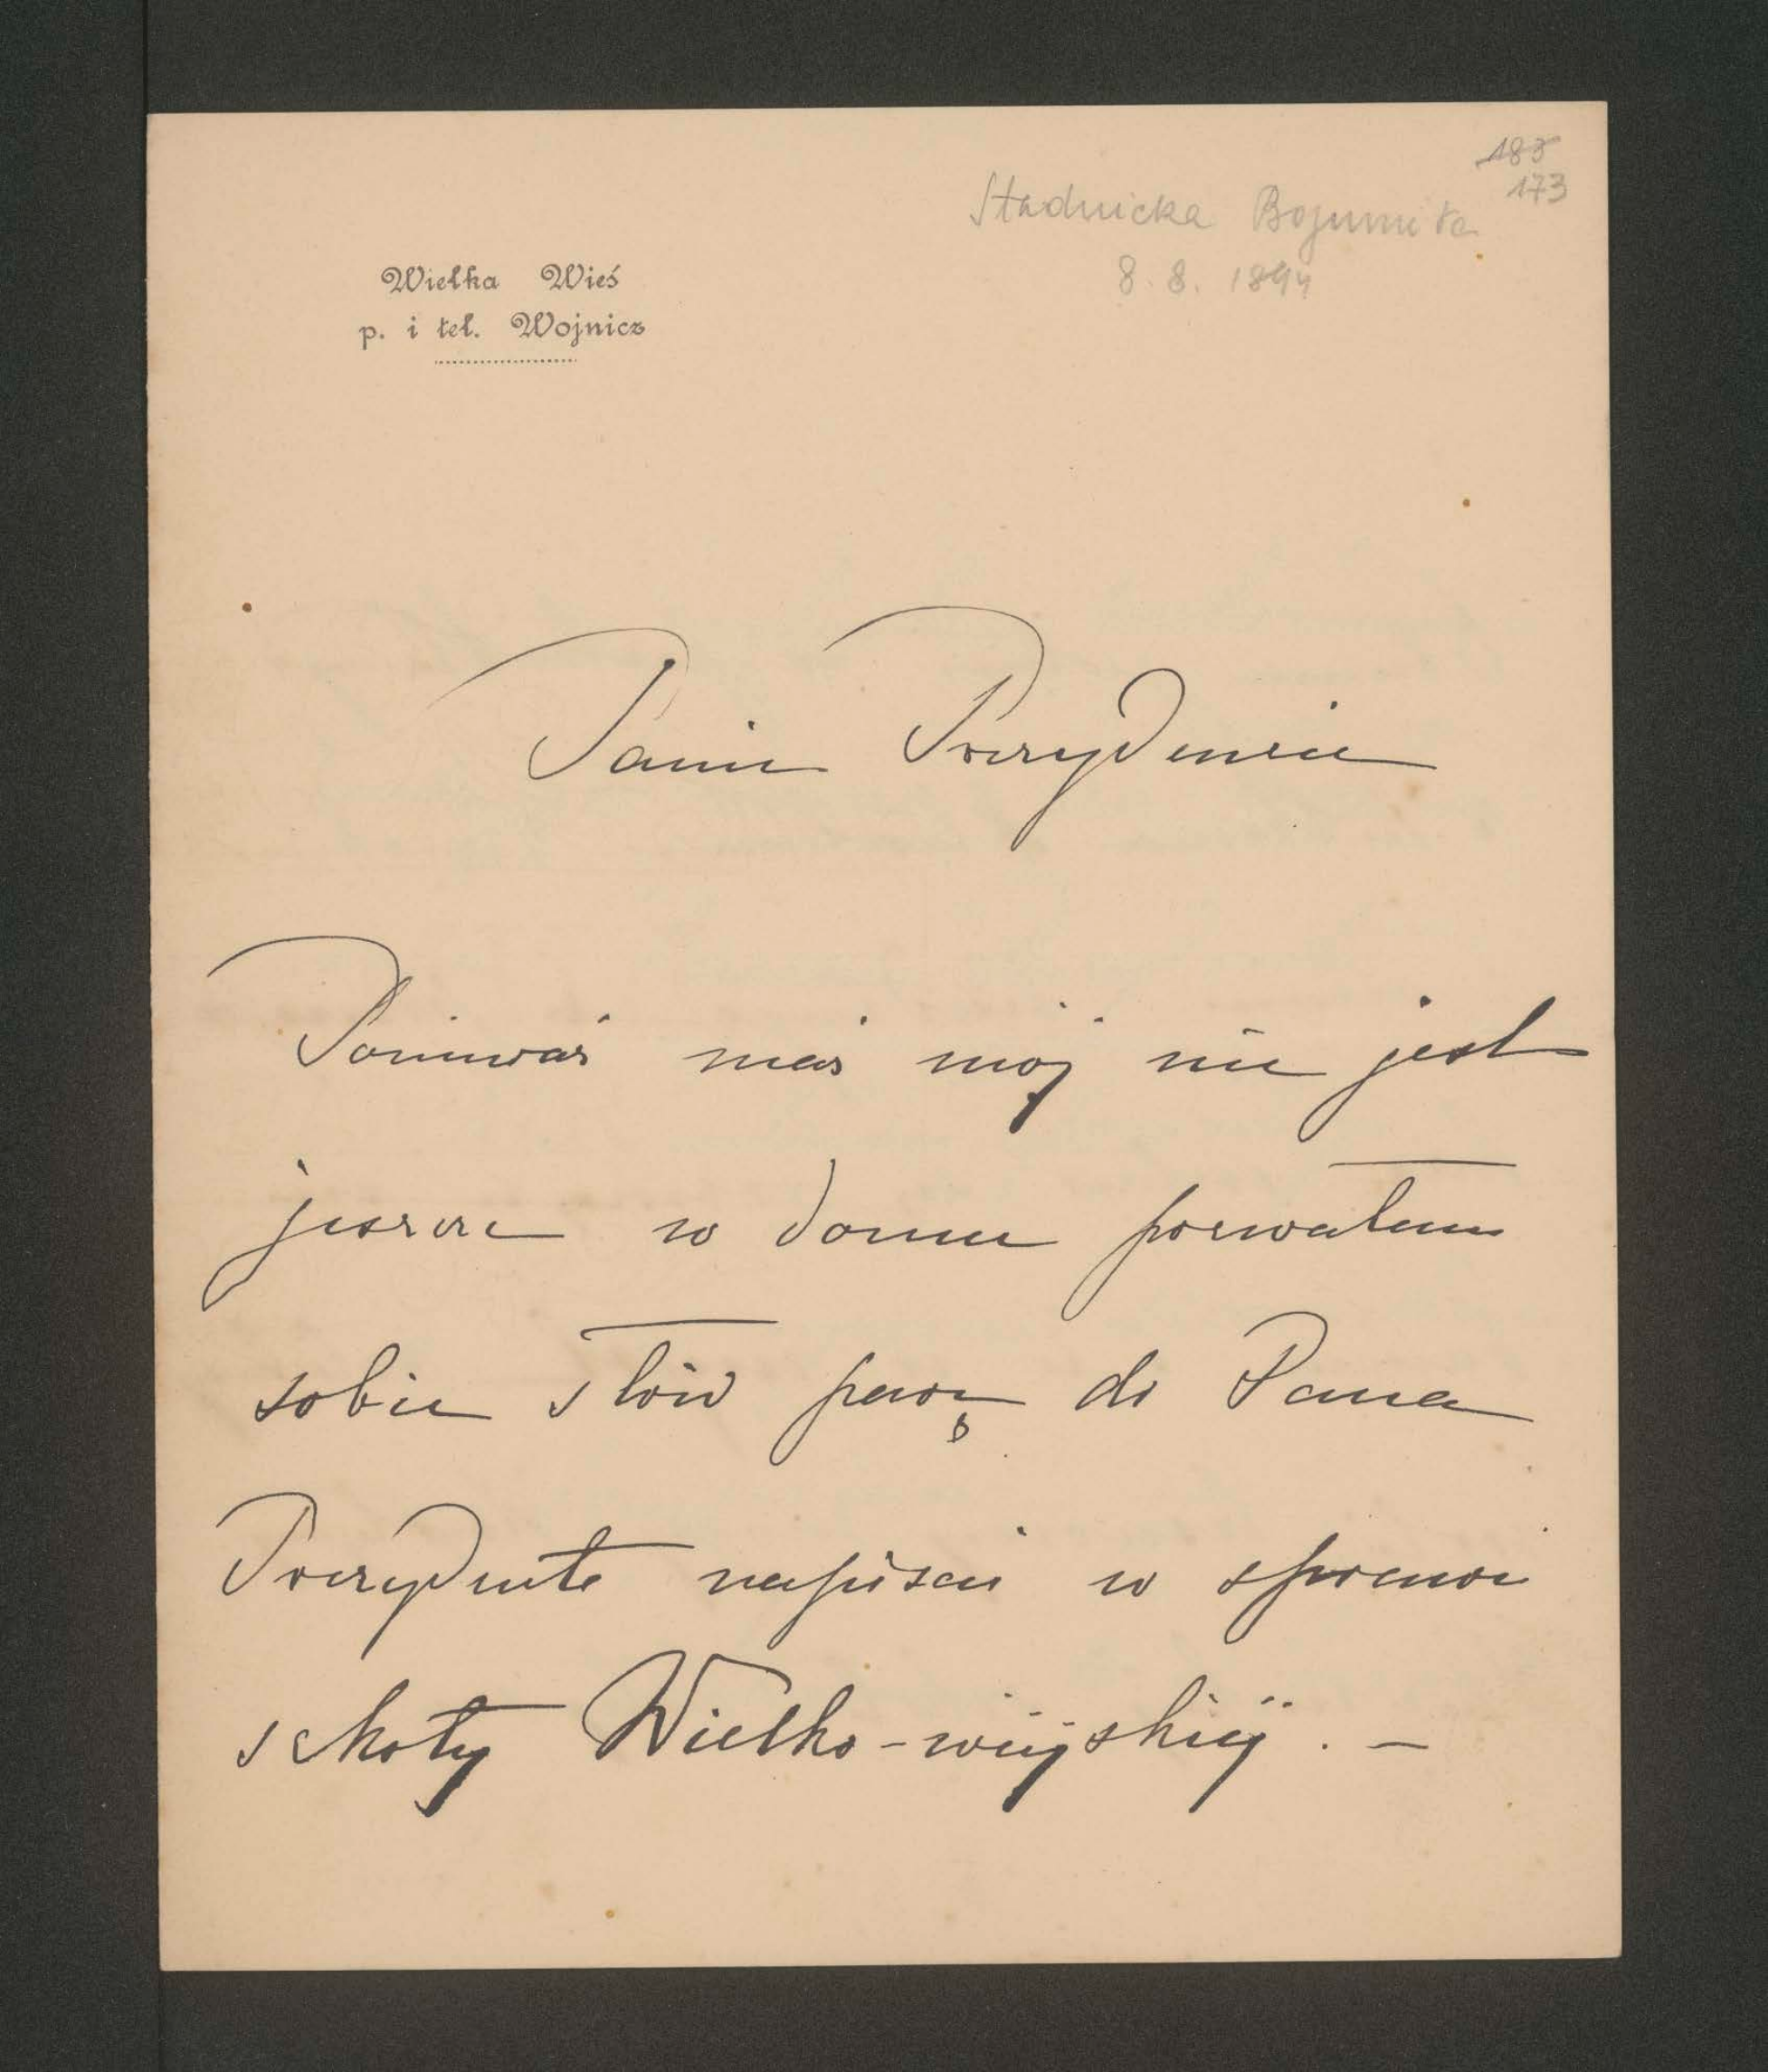 183
173
Stadnicka Bogumiła
8. 8. 1894
Wielka Wieś
p. i tel. Wojnicz
Panie Prezydencie
Ponieważ mąż mój nie jest
jeszcze w domu pozwalam
sobie słów parę do Pana
Prezydenta napisać w sprawie
szkoły Wielko-wiejskiej. —